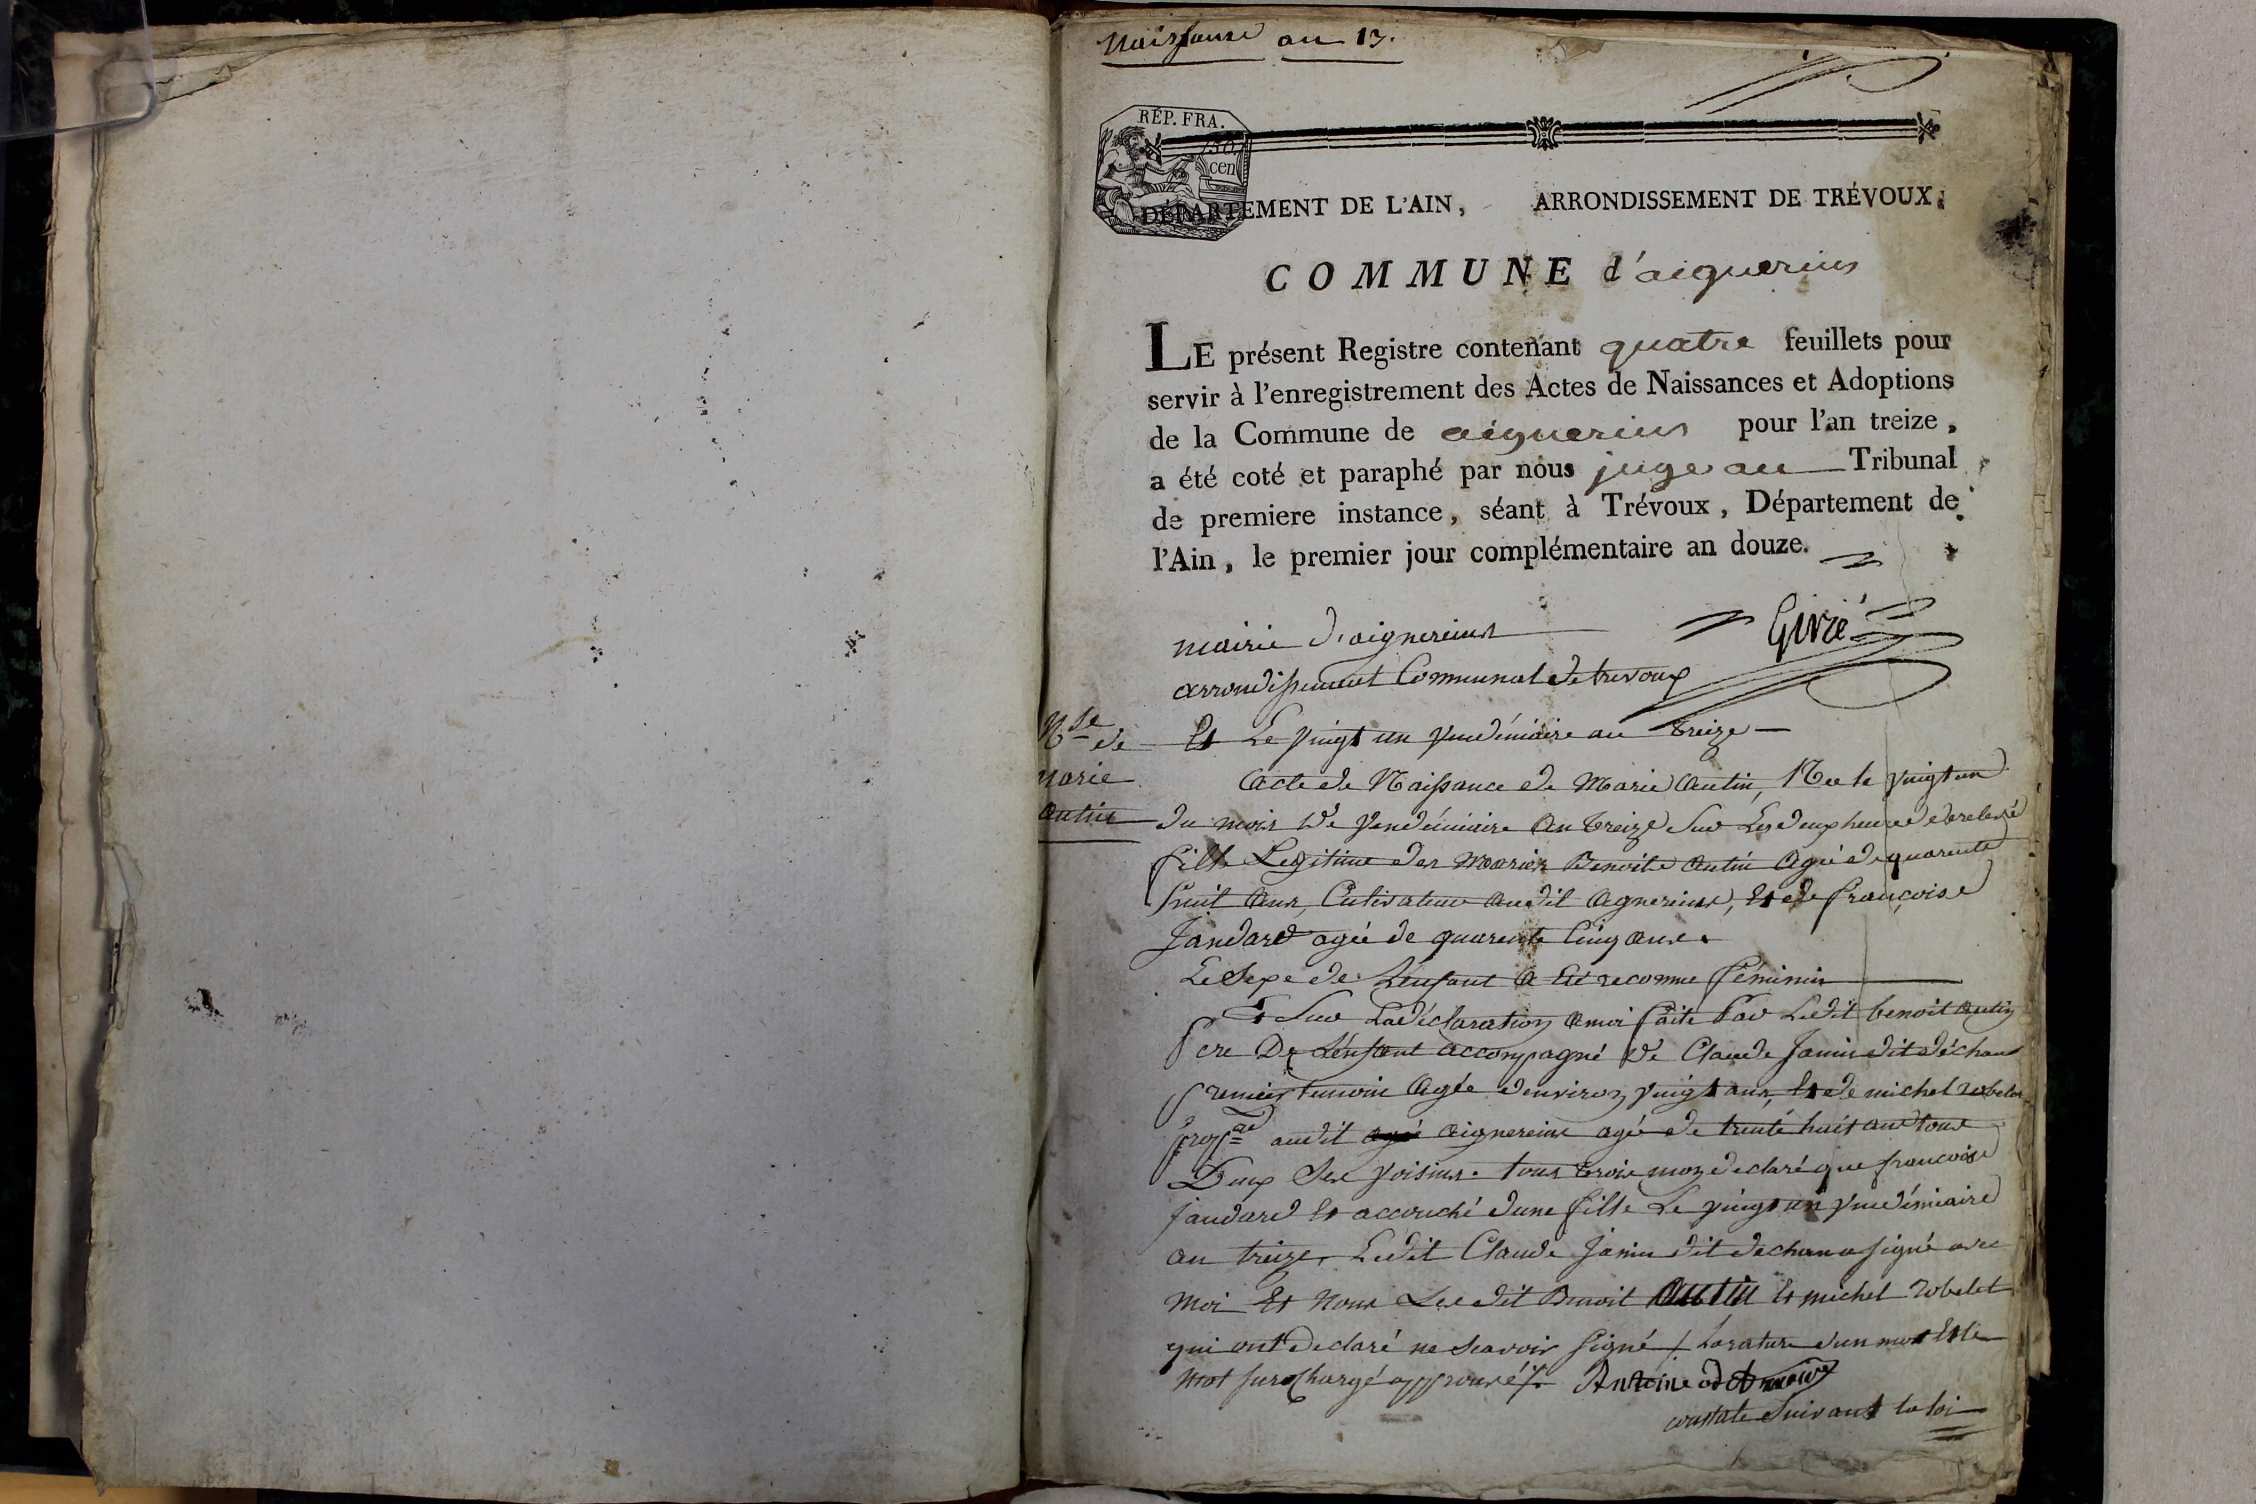 Naissance an 13.
RÉP. FRA.
50
cen
DÉPARTEMENT DE L'AIN, ARRONDISSEMENT DE TRÉVOUX,
COMMUNE d'aignereins
LE présent Registre contenant quatre feuillets pour
servir à l'enregistrement des Actes de Naissances et Adoptions
de la Commune de aignereins pour l'an treize,
a été coté et paraphé par nous juge au Tribunal
de premiere instance, séant à Trévoux, Département de
l'Ain, le premier jour complémentaire an douze.
Givré
mairie d'aignereins
arrondissement Communal de trevoux
Nce de
Marie
Autin
Et Le vingt un vendémiaire an treize
Acte de Naissance de Marie Autin, Née le vingt un
du mois de Vendémiaire an treize Sur Les deux heures de
fille Legitime des Mariés Benoite Autin agée de quarente
huit ans, Cultivateur audit aignereins, Et de françoise
Jandard agée de quarente Cinq ans.
Le Sexe de L'enfant a Eté reconnue féminin
Et Sur La déclaration a moi faite Par Ledit benoit Autin
Pere De L'enfant accompagné de Claude Janin dit déchana
Premier temoin Agée denviron vingt ans, Et de michel robelet
Propre audit aignereins agé de trente huit ans tous
Deux Ses voisins. tous trois mon declaré que francoise
Jandard Et accouché dune fille Le vingt un vendémiaire
an treize, Ledit Claude Janin dit dechana signé avec
Moi Et Nous Les dit Benoit Autin Et michel robelet
qui ont declaré ne Scavoir Signé / La rature dun mot Et le
mot surchargé approuvé /. Antoine
constate Suivant la loi